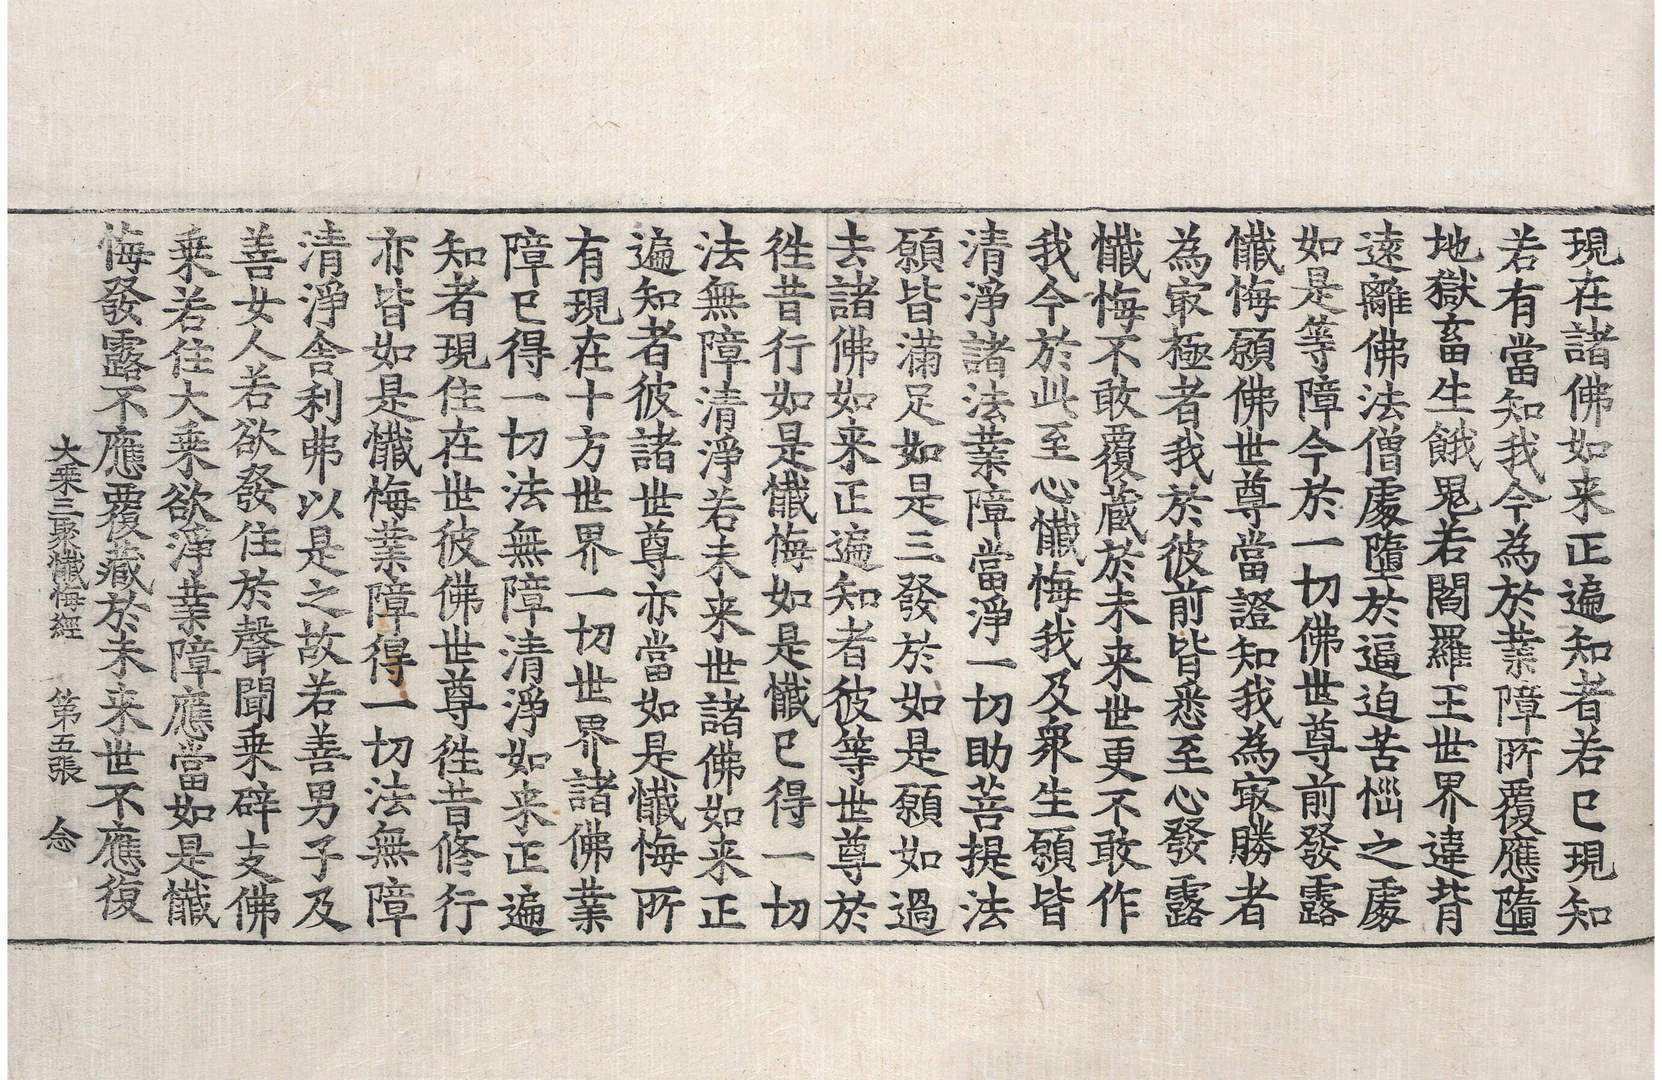 現在諸佛如来正遍知者若已現知
若有當知我今為於業障所覆應墮
地獄畜生餓鬼若閻羅王世界違背
遠離佛法僧處墮於逼迫苦惱之處
如是等障今於一切佛世尊前發露
懺悔願佛世尊當證知我為㝡勝者
為㝡極者我於彼前皆悉至心發露
懺悔不敢覆藏於未来世更不敢作
我今於此至心懺悔我及衆生願皆
清淨諸法業障當淨一切助菩提法
願皆滿足如是三發於如是願如過
去諸佛如来正遍知者彼等世尊於
徃昔行如是懺悔如是懺已得一切
法無障清淨若未来世諸佛如来正
遍知者彼諸世尊亦當如是懺悔所
有現在十方世界一切世界諸佛業
障已得一切法無障清淨如来正遍
知者現住在世彼佛世尊徃昔修行
亦皆如是懺悔業障得一切法無障
清淨舍利弗以是之故若善男子及
善女人若欲發住於聲聞乗辟支佛
乗若住大乗欲淨業障應當如是懺
悔發露不應覆藏於未来世不應復
大乗三聚懺悔經 第五張 念